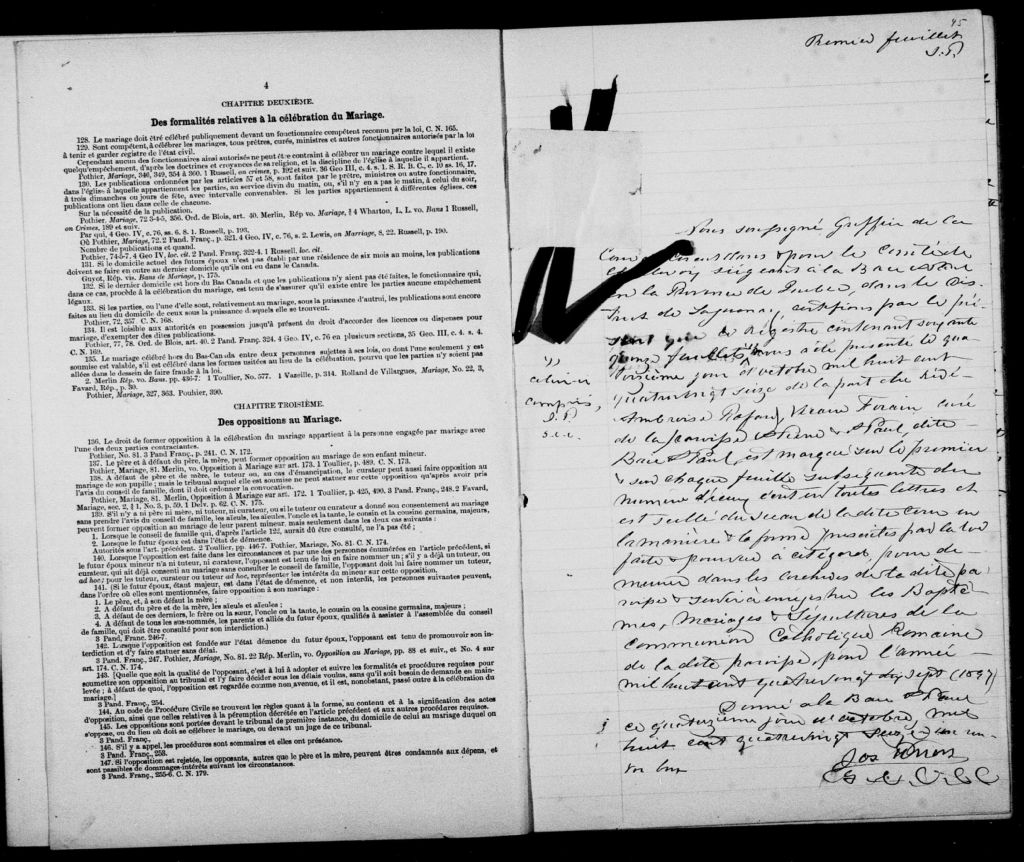 4
CHAPITRE DEUXIÈME.
Des formalités relatives à la célébration du Mariage.
128. Le mariage doit être célébré publiquement devant un fonctionnaire compétent reconnu par la loi, C. N. 165.
129. Sont compétent, à célébrer les mariages, tous prêtres, curés, ministres et autres fonctionnaires autorisés par la loi
à tenir et garder registre de l'état civil.
Cependant aucun des fonctionnaires ainsi autorisés ne peut être contraint à célébrer un mariage contre lequel il existe
quelqu'empêchement, d'après les doctrines et croyances de sa religion, et la discipline de l'église à laquelle il appartient.
Pothier, Mariage, 346, 349, 354 à 360. 1 Russell, on crimes, p. 192 et suiv. 36 Geo III, c. 4. s. 1. S. R. B. C., c. 10 ss. 16, 17.
130. Les publications ordonnées par les articles 57 et 58, sont faites par le prêtre, ministres ou autre fonctionnaire,
dans l'église à laquelle appartiennent les parties, au service divin du matin, ou, s'il n'y en a pas le matin, à celui du soir,
à trois dimanches ou jours de fête, avec intervalle convenables. Si les parties appartiennent à différentes églises, ces
publications ont lieu dans celle de chacune.
Sur la nécessité de la publication.
Pothier, Mariage, 72 3-4-5, 356. Ord. de Blois, art. 40. Merlin, Rép vo. Mariage, § 4 Wharton, L. L. vo. Bans 1 Russell,
on Crimes, 189 et suiv.
Par qui, 4 Geo. IV, c. 76, ss. 6, 8. 1. Russell, p. 193.
Où Pothier, Mariage, 72. 2 Pand. Franç., p. 321. 4 Geo. IV, c. 76, s. 2. Lewis, on Marriage, 8, 22. Russell, p. 190.
Nombre de publications et quand.
Pothier, 74-5-7. 4 Geo IV, loc. cit. 2 Pand. Franç. 322-4. 1 Russell, loc. cit.
131. Si le domicile actuel des futurs époux n'est pas établi par une résidence de six mois au moins, les publications
doivent se faire en outre au dernier domicile qu'ils ont eu dans le Canada.
Guyot, Rép. vis. Bans de Mariage, p. 175.
132. Si le dernier domicile est hors du Bas Canada et que les publications n'y aient pas été faites, le fonctionnaire qui,
dans ce cas, procède à la célébration du mariage, est tenu de s'assurer qu'il existe entre les parties aucune empêchement
légaux.
133. Si les parties, ou l'une d'elle sont, relativement au mariage, sous la puissance d'autrui, les publications sont encore
faites au lieu du domicile de ceux sous la puissance desquels elle se trouvent.
Pothier, 72, 357. C. N. 168.
134. Il est loisible aux autorités en possession jusqu'à présent du droit d'accorder des licences ou dispenses pour
mariage, d'exempter des dites publications.
Pothier, 77, 78. Ord. de Blois, art. 40. 2 Pand. Franç. 324. 4 Geo. IV, c. 76 en plusieurs sections, 35 Geo. III, c. 4. s. 4.
C. N. 169.
135. Le mariage célébré hors du Bas-Canada entre deux personnes sujettes à ses lois, ou dont l'une seulement y est
soumise est valable, s'il est célébré dans les formes usitées au lieu de la célébration, pourvu que les parties n'y soient pas
allées dans le dessein de faire fraude à la loi.
2. Merlin Rép. vo. Bans. pp. 436-7. 1 Toullier, No. 577. 1 Vazeille, p. 314. Rolland de Villargues, Mariage, No. 22, 3,
Favard, Rép., p. 30.
Pothier, Mariage, 327, 363. Pouhier, 390.
CHAPITRE TROISIÈME.
Des oppositions au Mariage.
136. Le droit de former opposition à la célébration du mariage appartient à la personne engagée par mariage avec
l'une des deux parties contractantes.
Pothier, No. 81. 3 Pand Franç., p. 241. C. N. 172.
137. Le père et à défaut du père, la mère, peut former opposition au mariage de son enfant mineur.
Pothier, Mariage, 81. Merlin, vo. Opposition à Mariage sur art. 173. 1 Toullier, p. 489. C. N. 173.
138. A défaut de père et de mère, le tuteur ou, au cas d'émancipation, le curateur peut aussi faire opposition au
mariage de son pupille ; mais le tribunal auquel elle est soumise ne peut statuer sur cette opposition qu'après avoir pris
l'avis du conseil de famille, dont il doit ordonner la convocation.
Pothier, Mariage, 81. Merlin, Opposition à Mariage sur art. 172. 1 Toullier, p. 425, 490. 3 Pand. Franç., 248. 2 Favard,
Mariage, sec. 2, § 1, No. 3, p. 59. 1 Delv. p. 62. C. N. 175.
139. S'il n'y a ni père ni mère, ni tuteur, ni curateur, ou si le tuteur ou curateur a donné son consentement au mariage
sans prendre l'avis du conseil de famille, les aïeuls, les aïeules, l'oncle et la tante, le cousin et la cousine germains, majeurs,
peuvent former opposition au mariage de leur parent mineur, mais seulement dans les deux cas suivants :
1. Lorsque le conseil de famille qui, d'après l'article 122, aurait dû être consulté, ne l'a pas été ;
2. Lorsque le futur époux est dans l'état de démence.
Autorités sous l'art. précédent. 2 Toullier, pp. 446-7. Pothier, Mariage, No. 81. C. N. 174.
140. Lorsque l'opposition est faite dans les circonstances et par une des personnes énumérées en l'article précédent, si
le futur époux mineur n'a ni tuteur, ni curateur, l'opposant est tenu de lui en faire nommer un ; s'il y a déjà un tuteur, ou
curateur, qui ait déjà consenti au mariage sans consulter le conseil de famille, l'opposant doit lui faire nommer un tuteur,
ad hoc ; pour les tuteur, curateur ou tuteur ad hoc, représenter les intérêts du mineur sur cette opposition.
141. (Si le futur époux, étant majeur, est dans l'état de démence, et non interdit, les personnes suivantes peuvent,
dans l'ordre où elles sont mentionnées, faire opposition à son mariage :
1. Le père, et, à son défaut la mère ;
2. A défaut du père et de la mère, les aïeuls et aïeules ;
3. A défaut de ces derniers, le frère ou la sœur, l'oncle ou la tante, le cousin ou la cousine germains, majeurs ;
4. A défaut de tous les sus-nommés, les parents et alliés du futur époux, qualifiés à assister à l'assemblée du conseil
de famille, qui doit être consulté pour son interdiction.)
3 Pand, Franc. 246-7.
142. Lorsque l'opposition est fondée sur l'état démence du futur époux, l'opposant est tenu de promouvoir son in-
terdiction et d'y faire statuer sans délai.
3 Pand. Franç., 247. Pothier, Mariage, No. 81. 22 Rép. Merlin, vo. Opposition au Mariage, pp. 88 et suiv., et No. 4 sur
art. 174. C. N. 174.
143. [Quelque que soit la qualité de l'opposant, c'est à lui à adopter et suivre les formalités et procédures requises pour
soumettre son opposition au tribunal et l'y faire décider sous les délais voulus, sans qu'il soit besoin de demande en main-
levée ; à défaut de quoi, l'opposition est regardée comme non avenue, et il est, nonobstant, passé outre à la célébration du
mariage.]
3 Pand. Franç., 254.
144. Au code de Procédure Civile se trouvent les règles quant à la forme, au contenu et à la signification des actes
d'opposition, ainsi que celles relatives à la péremption décrétée en l'article précédent et aux autres procédures requises.
145. Les oppositions sont portées devant le tribunal de première instance, du domicile de celui au mariage duquel on
s'oppose, ou du lieu où doit se célébrer le mariage, ou devant un juge de ce tribunal.
3 Pand. Franç.,
146. S'il y a appel, les procédures sont sommaires et elles ont préséance.
3 Pand. Franç., 258.
147. Si l'opposition est rejetée, les opposants, autres que le père et la mère, peuvent être condamnés aux dépens, et
sont passibles de dommages-intérêts suivant les circonstances.
3 Pand. Franç., 255-6. C. N. 179.
45
Premier feuillet
J.P.
Nous soussigné Greffier de
pour le Comté de
siégeant à la Baie St Paul
en la Province de Québec, dans le Dis-
trict de Saguenay, certifions par le pré-
sent que ce Régistre contenant soixante
quinze feuillets nous a été présenté le qua-
torzième jour d'octobre mil huit cent
quatrevingt seize de la part du Révd
Ambroise Fafard, Vicaire Forain curé
de la paroisse St Pierre & St Paul, dite
Baie St Paul, est marqué sur le premier
& sur chaque feuille subséquente du
numéro écrit en toutes lettres et
est scellé du sceau de la dite cour en
la manière & la forme prescrites par la loi
faite & pourvue à cet égard, pour de-
meurer dans les archives de la dite pa-
roisse & servir à enregistrer les Baptê-
mes, Mariages & Sépultures de la
Communion Catholique Romaine
de la dite paroisse, pour l'année
mil huit cent quatrevingt dix sept (1897)
Donné à la Baie St Paul
ce quatorzième jour d'octobre, mil
huit cent quatrevingt seize